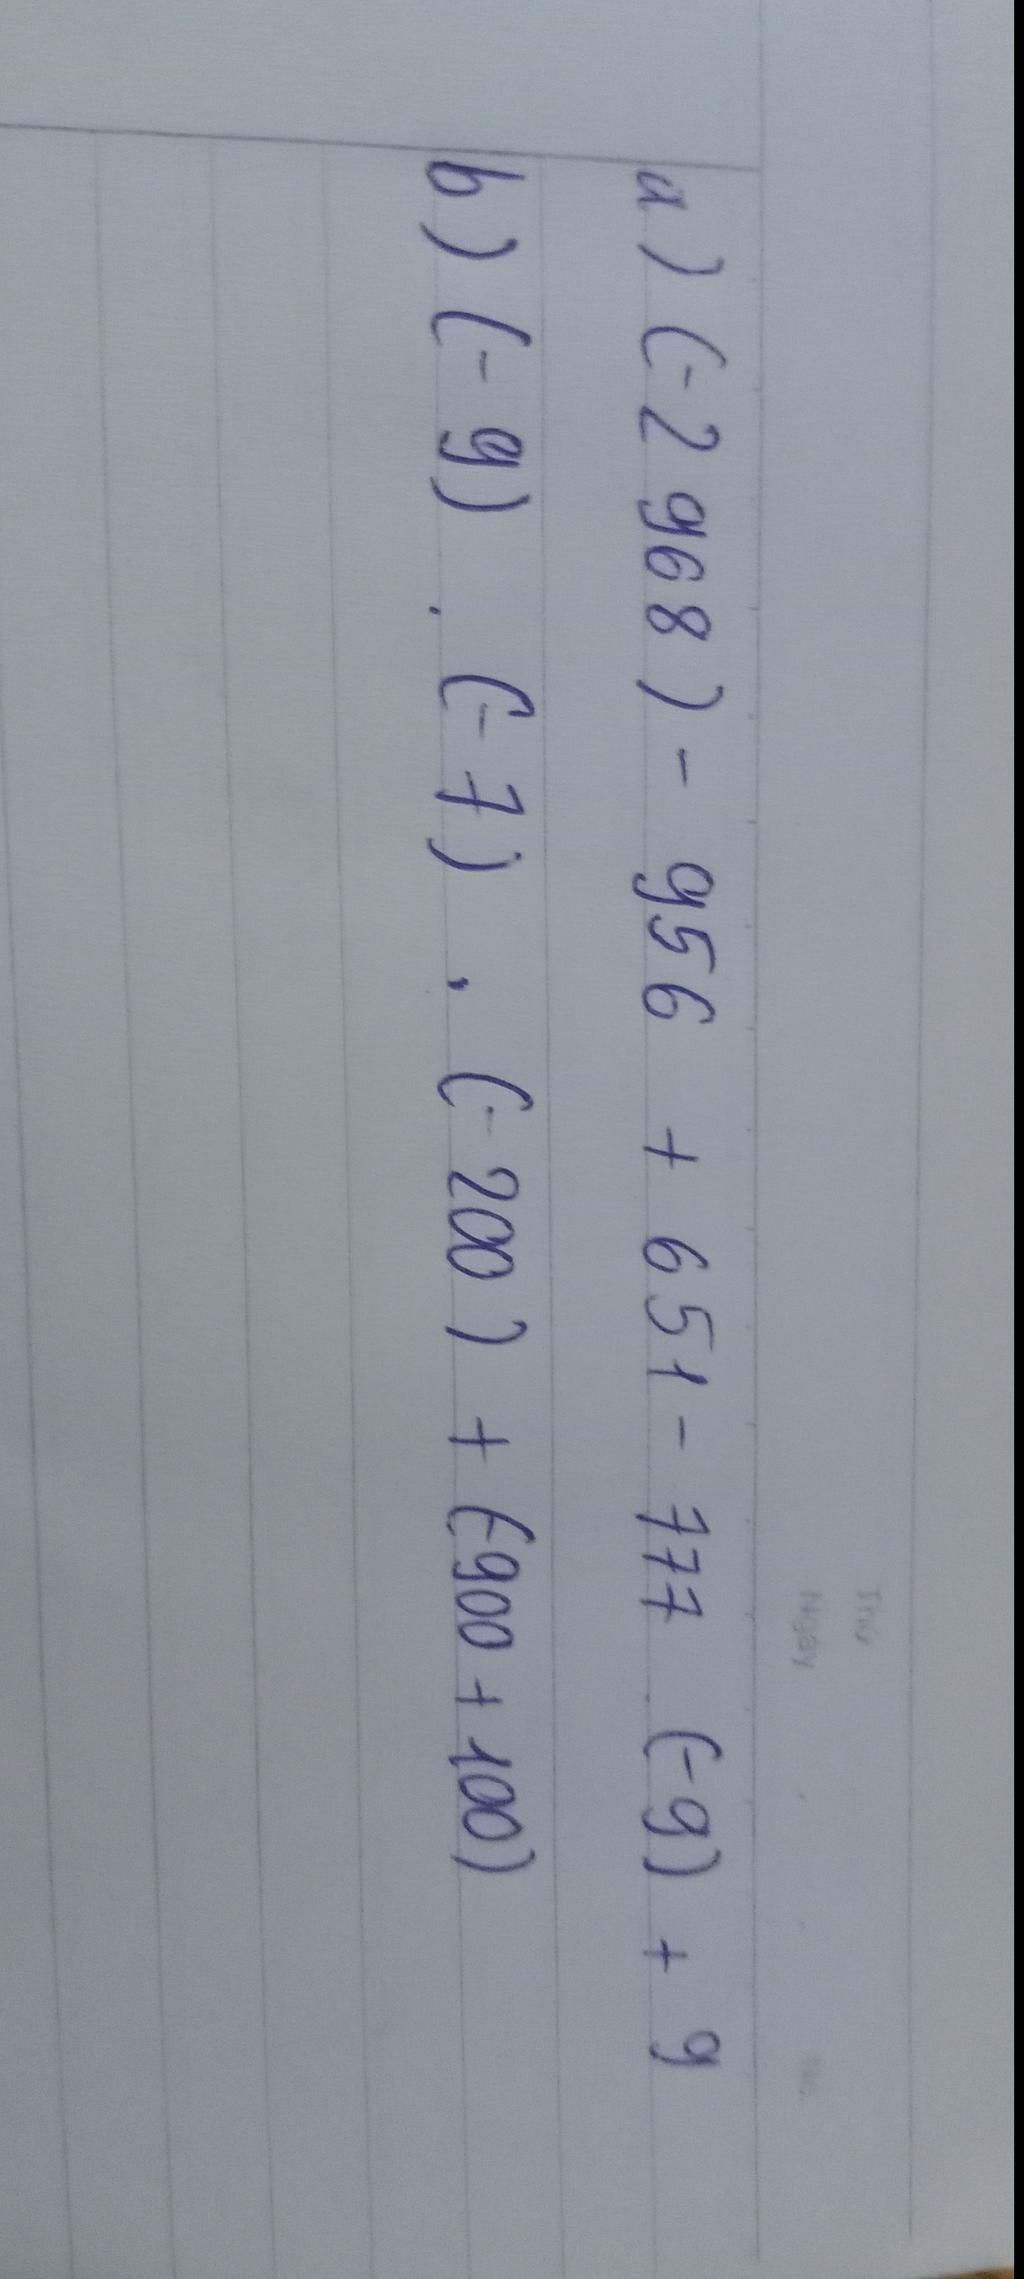 Thứ
Ngày No.
a) (-2 968) - 956 + 651 - 777 (-9) + 9
b) (-9) . (-7) . (-200) + (-900 + 100)